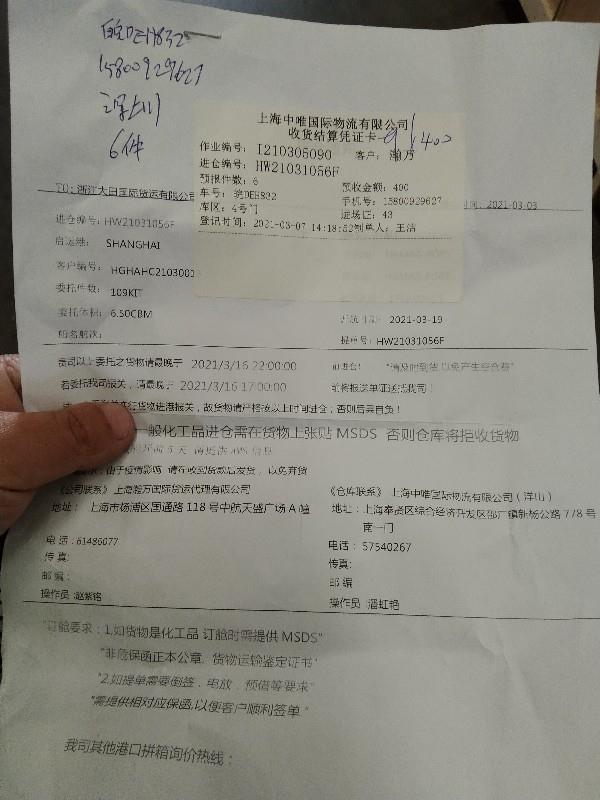 皖DEH832
15800929627
6件
上海中唯国际物流有限公司
收货结算凭证卡
400
作业编号: I210305090 客户: 瀚万
进仓编号: HW21031056F
预报件数: 6 预收金额: 400
车号: 皖DEH832 手机号: 15800929627
库区: 4号门 进场证: 43
登记时间: 2021-03-07 14:18:52 制单人: 王洁
TO: 浙江大田国际货运有限公司 2021-03-03
进仓编号: HW21031056F
启运港: SHANGHAI
客户编号: HGHAHC2103000
委托件数: 109KIT
委托体积: 6.50CBM 2021-03-19
船名航次: 提单号: HW21031056F
贵司以上委托之货物请最晚于 2021/3/16 22:00:00 "请及时到法 以免产生空仓费"
若委托我司报关,请最晚于 2021/3/16 17:00:00 前将报关单证送抵我司!
货物进港报关,故货物请严格按以上时间进仓,否则后果自负!
一般化工品进仓需在货物上张贴 MSDS 否则仓库将拒收货物
由于疫情影响 请在收到货款后发货, 以免弃货
《公司联系》上海瀚万国际货运代理有限公司 《仓库联系》上海中唯国际物流有限公司(洋山)
地址: 上海市杨浦区国通路 118 号中航天盛广场 A 幢 地址: 上海奉贤区综合经济开发区邵厂镇新杨公路 778 号
南一门
电话: 61486077 电话: 57540267
传真: 传真:
邮编: 邮编
操作员: 赵紫铭 操作员: 潘虹艳
"订舱要求: 1,如货物是化工品 订舱时需提供 MSDS"
"非危保函正本公章, 货物运输鉴定证书"
"2.如提单需要倒签, 电放, 预借等要求"
"需提供相对应保函,以便客户顺利签单"
我司其他港口拼箱询价热线: